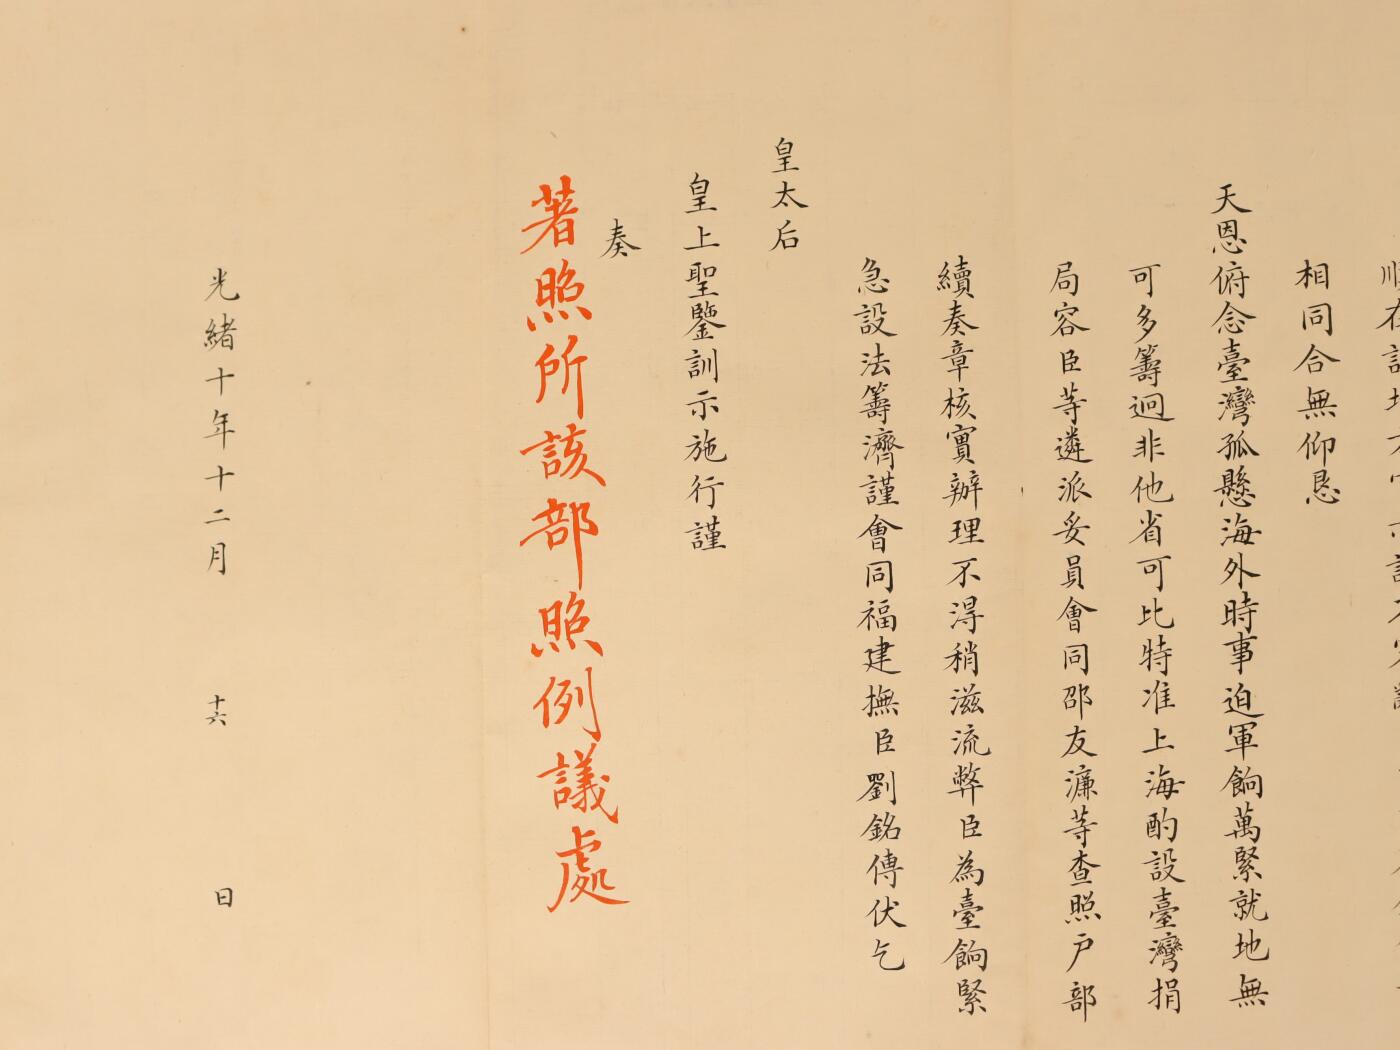 相同合無仰恳
天恩俯念臺灣孤懸海外時事迫軍餉萬緊就地無
可多籌迥非他省可比特准上海酌設臺灣捐
局容臣等遴派妥員會同邵友濂等查照户部
續奏章核實辦理不得稍滋流弊臣為臺餉緊
急設法籌濟謹會同福建撫臣劉銘傳伏乞
皇太后
皇上聖鑒訓示施行謹
奏
著照所該部照例議處
光緒十年十二月十六日